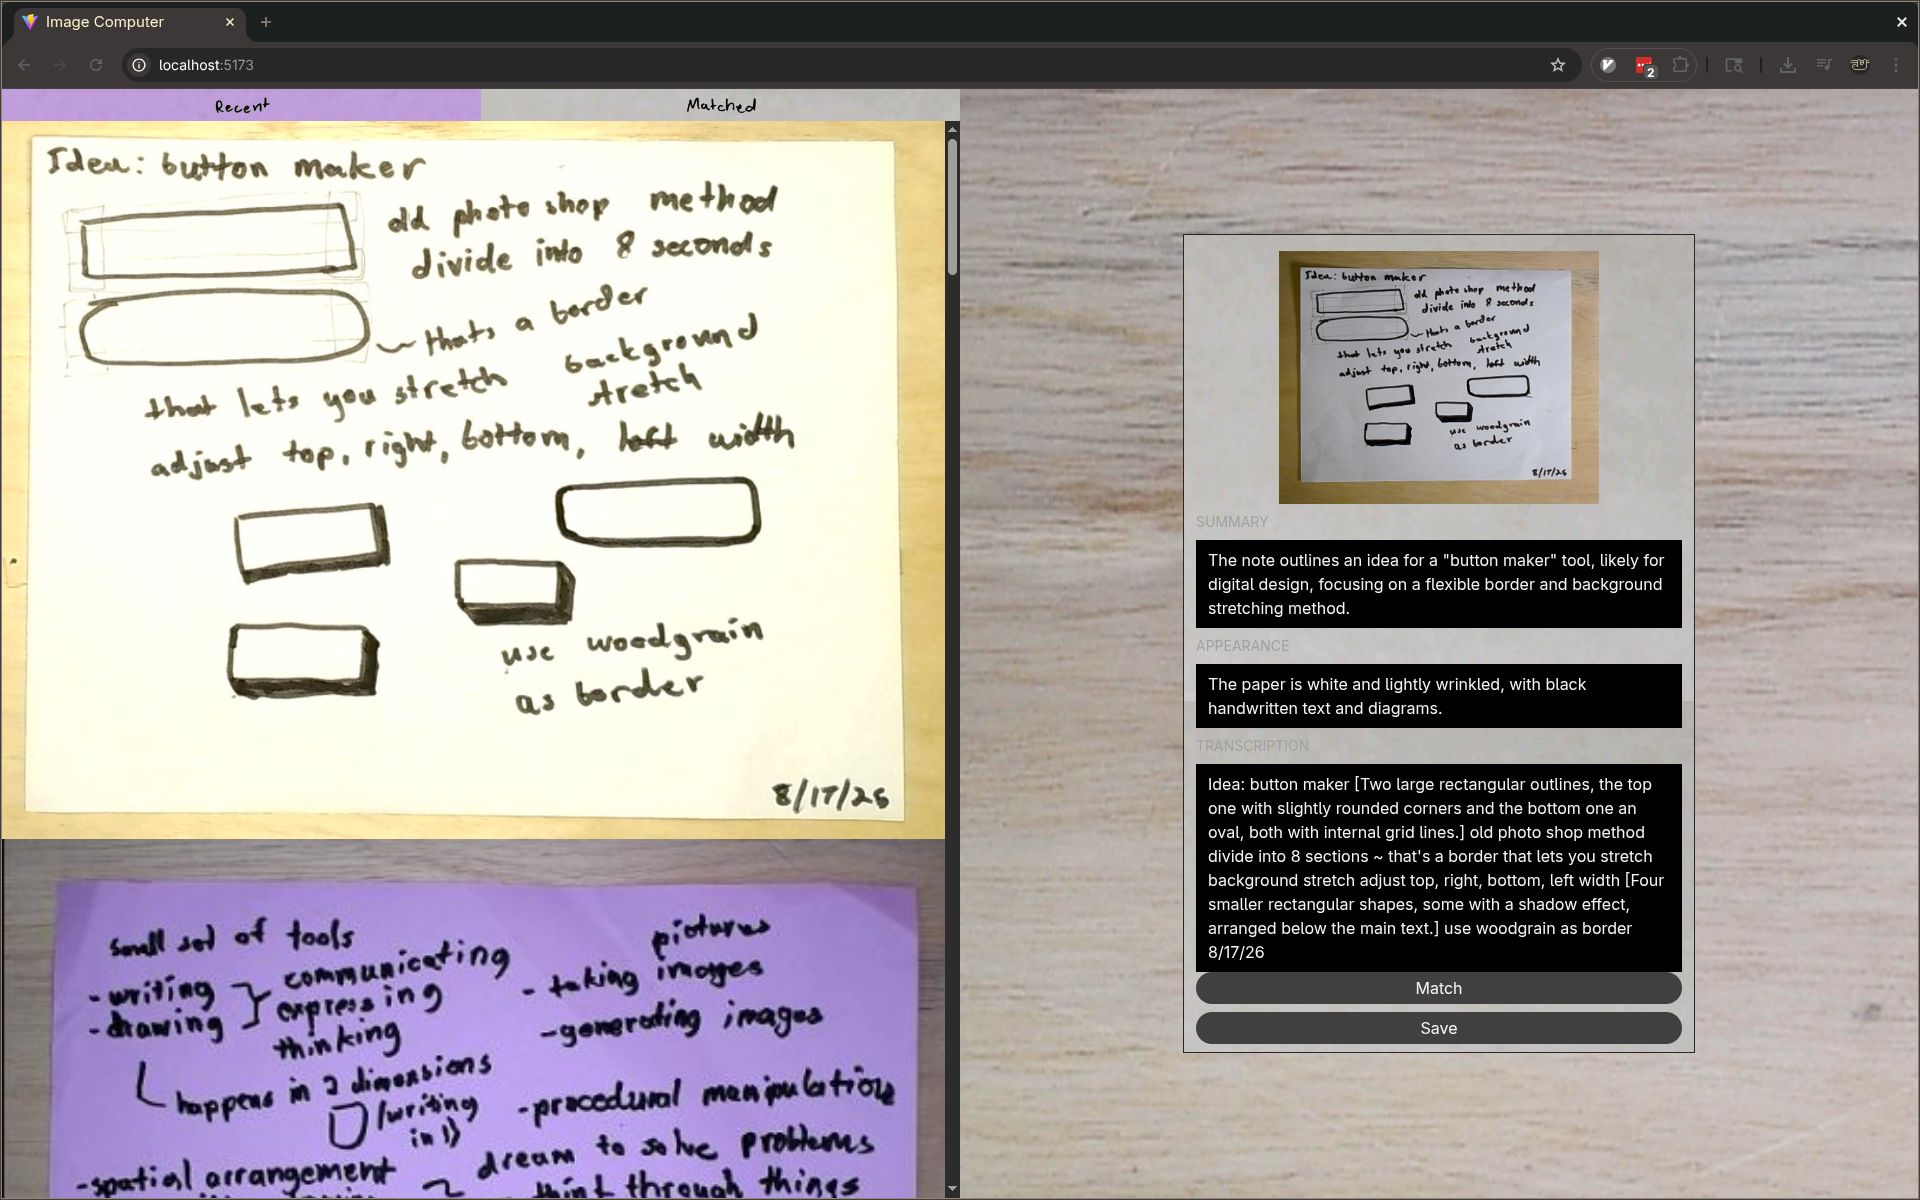 Image Computer
localhost:5173
2
Recent
Matched
Idea: button maker
old photo shop method
divide into 8 seconds
thats a border
that lets you stretch
background
stretch
adjust top, right, bottom, left width
use woodgrain
as border
8/17/26
small set of tools
-writing
-drawing
communicating
expressing
thinking
happens in 2 dimensions
(writing
in 1)
-spatial arrangement
pictures
- taking images
-generating images
-procedural manipulation
dream to solve problems
think through things
Idea: button maker
old photo shop method
divide into 8 seconds
thats a border
that lets you stretch
background
stretch
adjust top, right, bottom, left width
use woodgrain
as border
8/17/26
SUMMARY
The note outlines an idea for a "button maker" tool, likely for
digital design, focusing on a flexible border and background
stretching method.
APPEARANCE
The paper is white and lightly wrinkled, with black
handwritten text and diagrams.
TRANSCRIPTION
Idea: button maker [Two large rectangular outlines, the top
one with slightly rounded corners and the bottom one an
oval, both with internal grid lines.] old photo shop method
divide into 8 sections ~ that's a border that lets you stretch
background stretch adjust top, right, bottom, left width [Four
smaller rectangular shapes, some with a shadow effect,
arranged below the main text.] use woodgrain as border
8/17/26
Match
Save